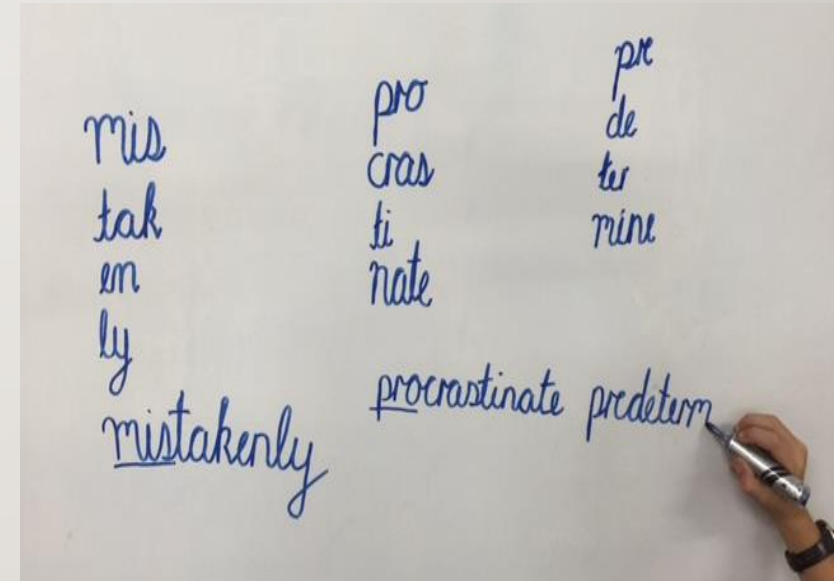 mis
tak
en
ly
mistakenly
pro
cras
ti
nate
procrastinate
pre
de
ter
mine
predeterm